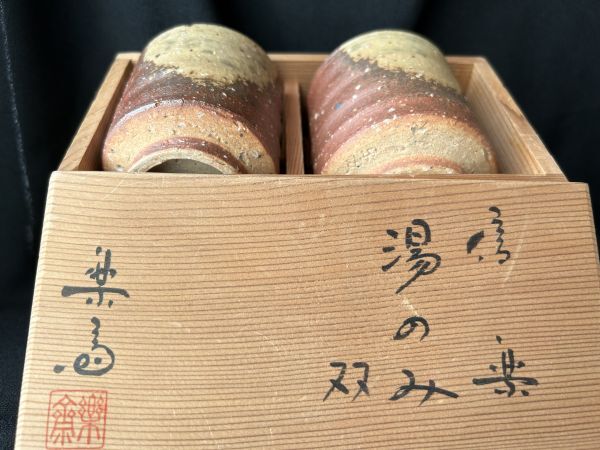 信楽
湯のみ
双
楽斎
樂齋